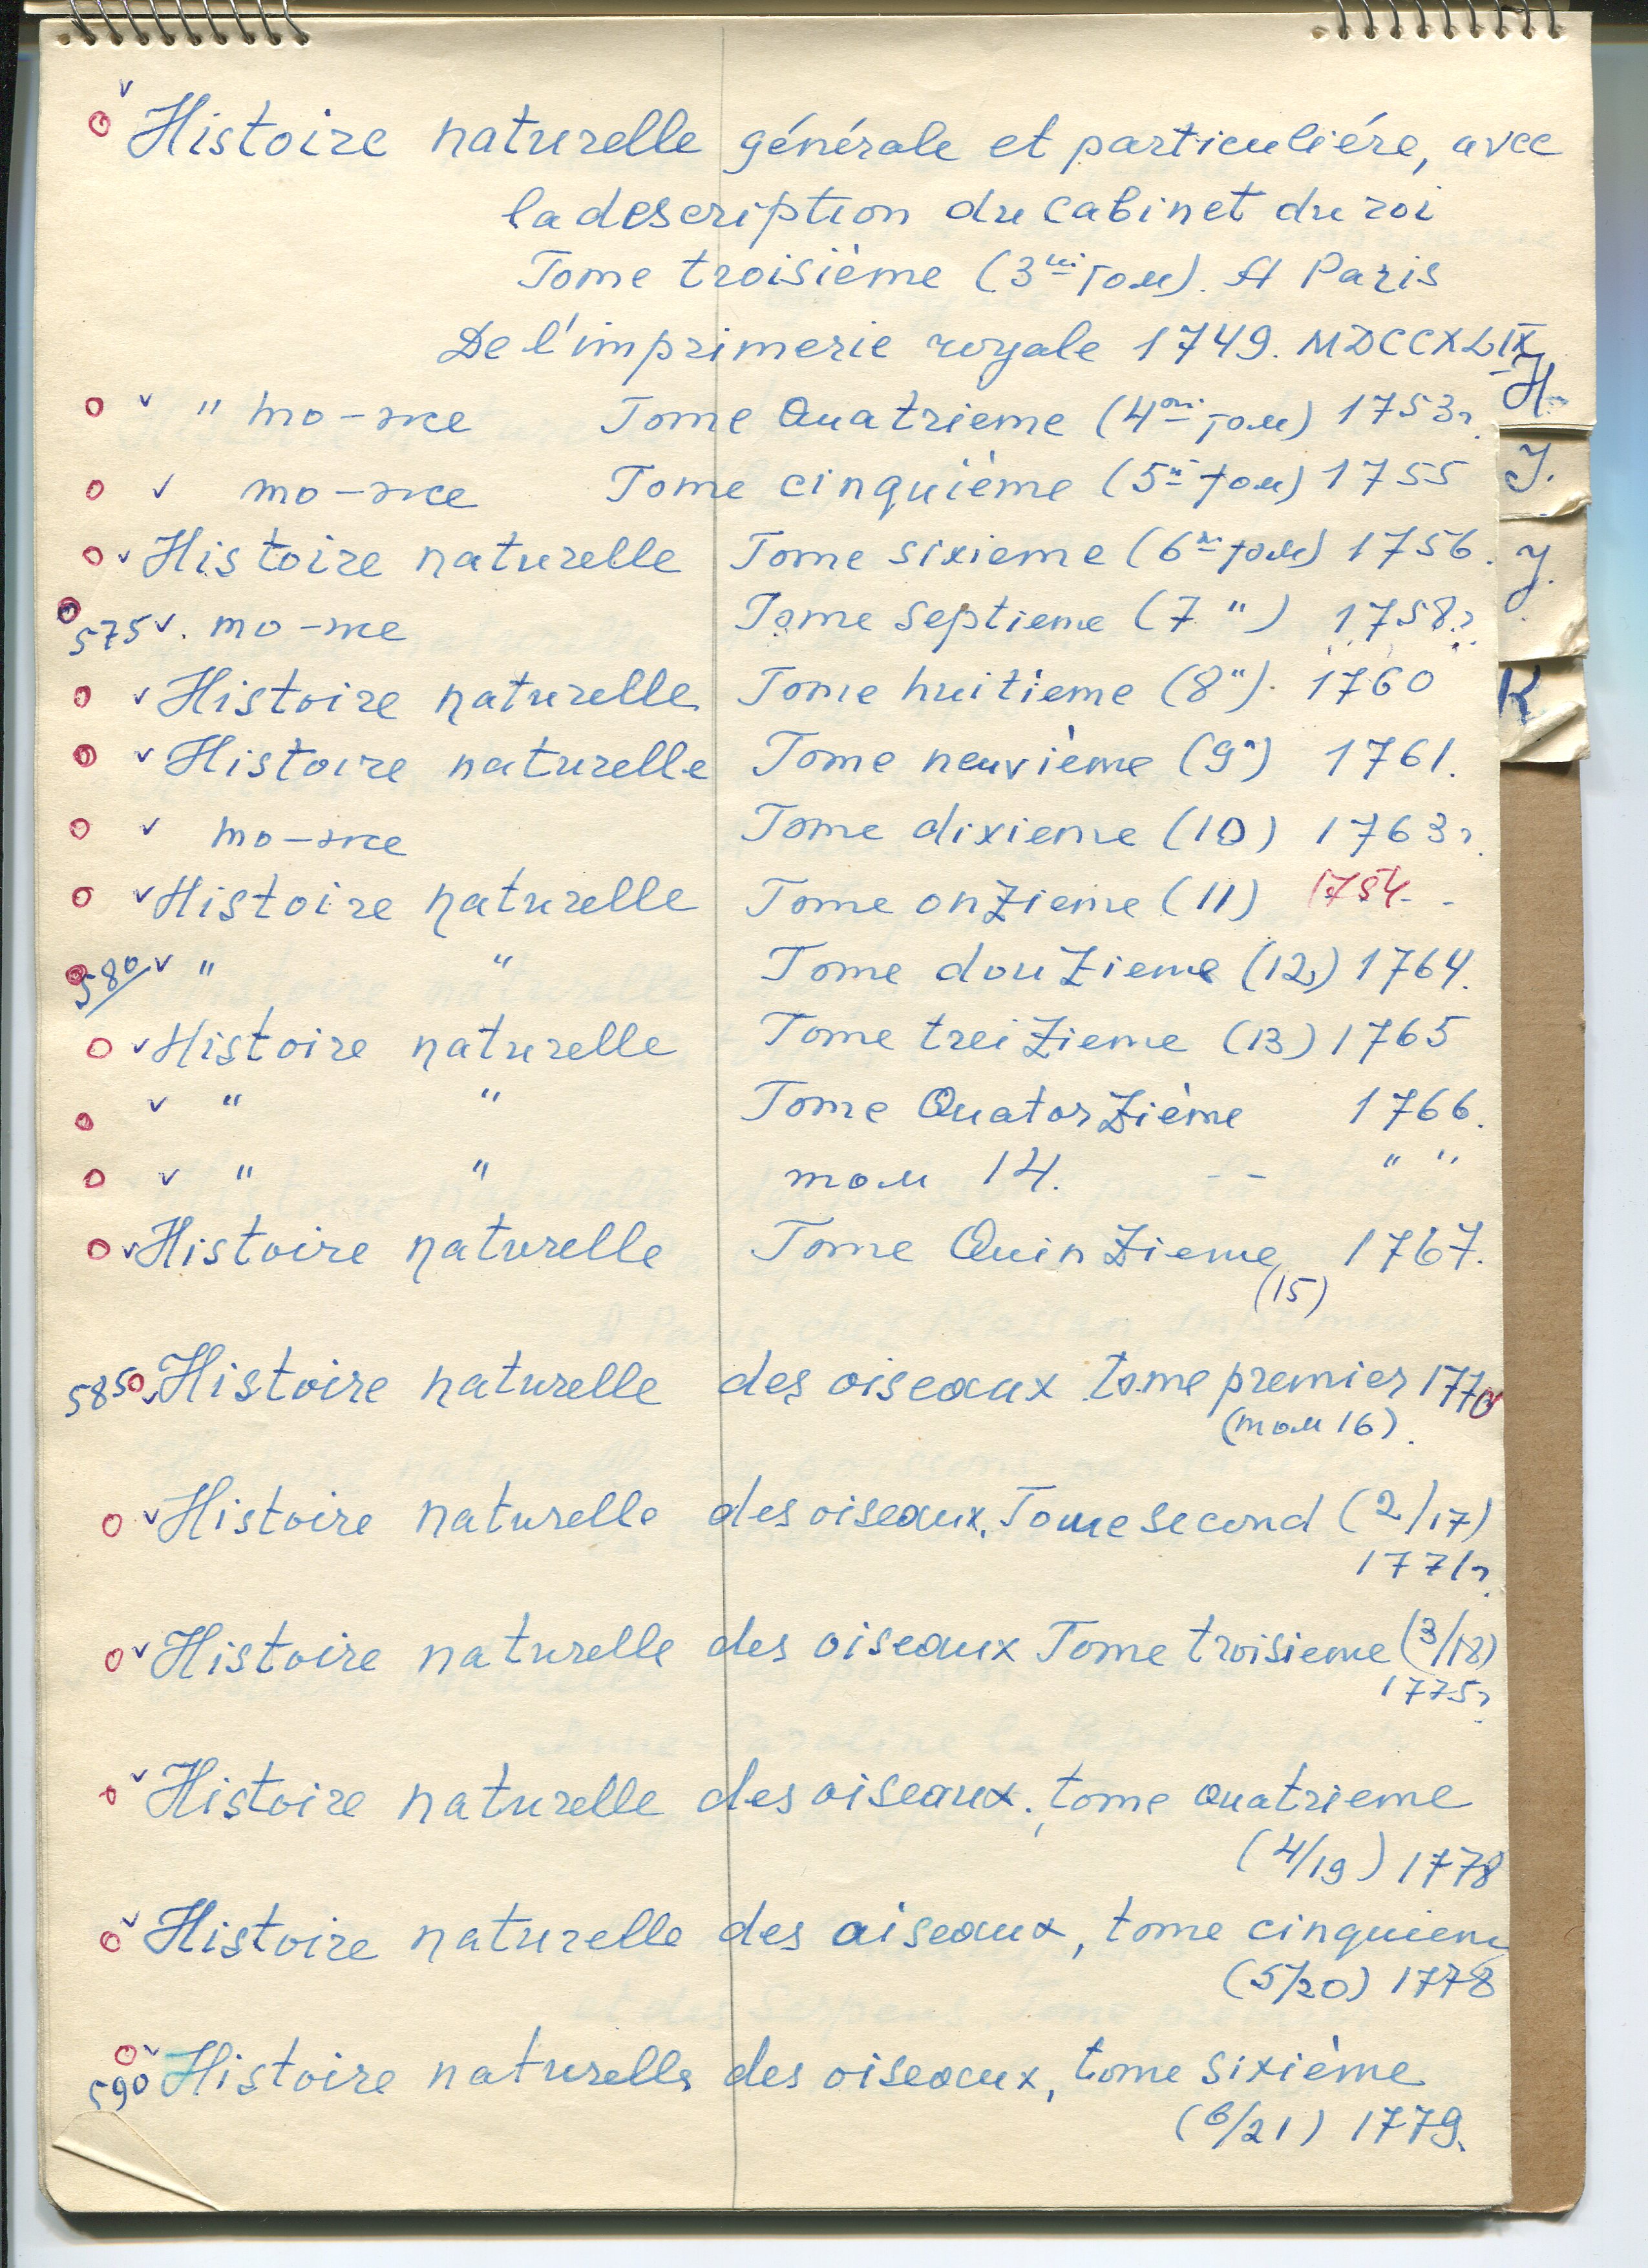 Histoire naturelle générale et particuliére, avec
la description du cabinet du roi
Tome troisième (3ий том). A Paris
De l'imprimerie royale 1749. MDCCXLIX
H.
" то-же Tome Quatrieme (4ый том) 1753г.
то-же Tome cinquième (5й том) 1755
J.
Histoire naturelle Tome sixieme (6й том) 1756.
j.
575 то-же Tome septieme (7 ") 1758г.
Histoire naturelle Tome huitieme (8"). 1760
K
Histoire naturelle Tome neuvième (9") 1761.
то-же Tome dixieme (10) 1763г.
Histoire naturelle Tome onzieme (11) 1754.
580 " " Tome douzieme (12) 1764.
Histoire naturelle Tome treizieme (13) 1765
" " Tome Quatorzième 1766.
" " том 14. -- " "
Histoire naturelle Tome Quinzieme 1767.
(15)
585 Histoire naturelle des oiseaux tome premier 1770
(том 16).
Histoire naturelle des oiseaux, Tome second (2/17)
1771г.
Histoire naturelle des oiseaux Tome troisieme (3/18)
1775г.
Histoire naturelle des oiseaux, tome quatrieme
(4/19) 1778
Histoire naturelle des oiseaux, tome cinquieme
(5/20) 1778
590 Histoire naturelle des oiseaux, tome sixième
(6/21) 1779.